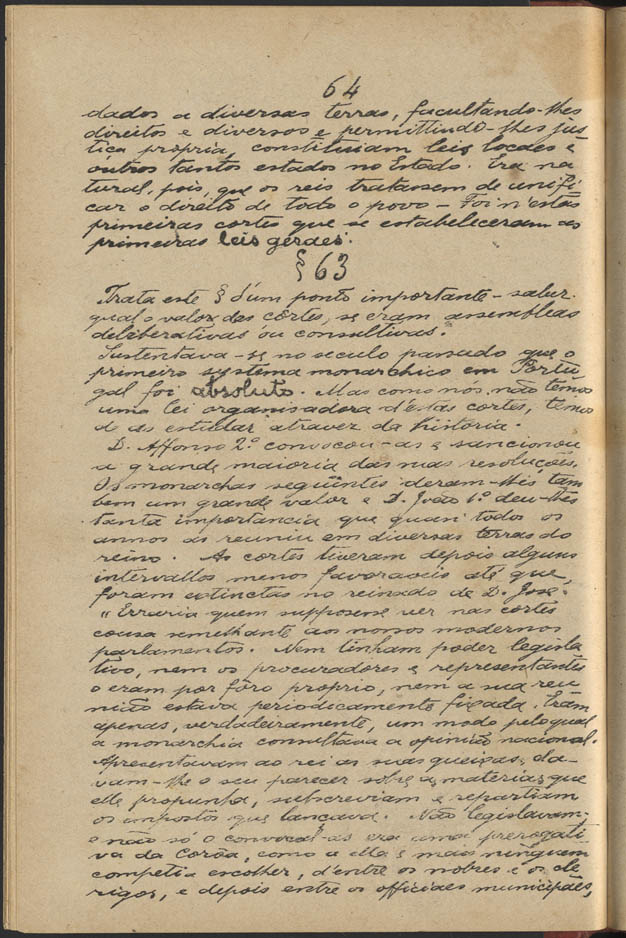 64
dados a diversas terras, facultando-lhes
direitos e diversos e permittindo-lhes jus
tiça propria, constituiam leis locaes e
outros tantos estados no Estado. Era na
tural, pois, que os reis tratassem de unifi
car o direito de todo o povo - Foi n'estas
primeiras cortes que se estabeleceram as
primeiras leis geraes.
§ 63
Trata este § d'um ponto importante - saber
qual o valor das côrtes, se eram assembleas
deliberativas ou consultivas.
Sustentava-se no seculo passado que o
primeiro systema monarchico em Portu
gal foi absoluto. Mas como nós não temos
uma lei organisadora d'estas cortes, temos
de as estudar atravez da historia.
D. Affonso 2.º convocou-as e sancionou
a grande maioria das suas resoluções.
Os monarchas seguintes deram-lhes tam
bem um grande valor e D. João 1.º deu-lhes
tanta importancia que quasi todos os
annos as reuniu em diversas terras do
reino. As cortes tiveram depois alguns
intervallos menos favoraveis até que,
foram extinctas no reinado de D. José.
"Erraria quem suppozesse ver nas cortes
cousa semelhante aos nossos modernos
parlamentos. Nem tinham poder legisla
tivo, nem os procuradores e representantes
o eram por fôro proprio, nem a sua reu
nião estava periodicamente fixada. Eram
apenas, verdadeiramente, um modo pelo qual
a monarchia consultava a opinião nacional.
Apresentavam ao rei as suas queixas, da-
vam-lhe o seu parecer sobre as materias que
elle propunha, subscreviam e repartiam
os impostos que lançava. Não legislavam,
e não só o convocal-as era uma prerogati
va da Corôa, como a ella e mais ninguem
competia escolher, d'entre os nobres e os cle
rigos, e depois entre os officiaes municipaes,